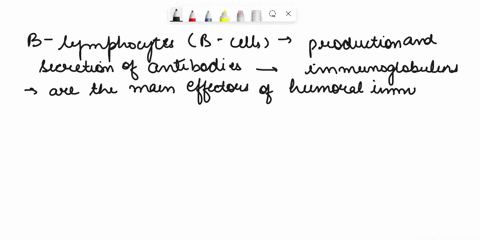 B- lymphocytes (B-cells) → production and
secretion of antibodies — immunoglobulins
→ are the main effectors of humoral imm